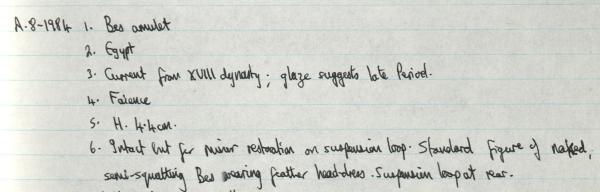 A.8-1984 1. Bes amulet
2. Egypt
3. Current from XVIII dynasty; glaze suggests late Period.
4. Faience
5. H. 4.4cm.
6. Intact but for minor restoration on suspension loop. Standard figure of naked,
semi-squatting Bes wearing feather head-dress. Suspension loop at rear.